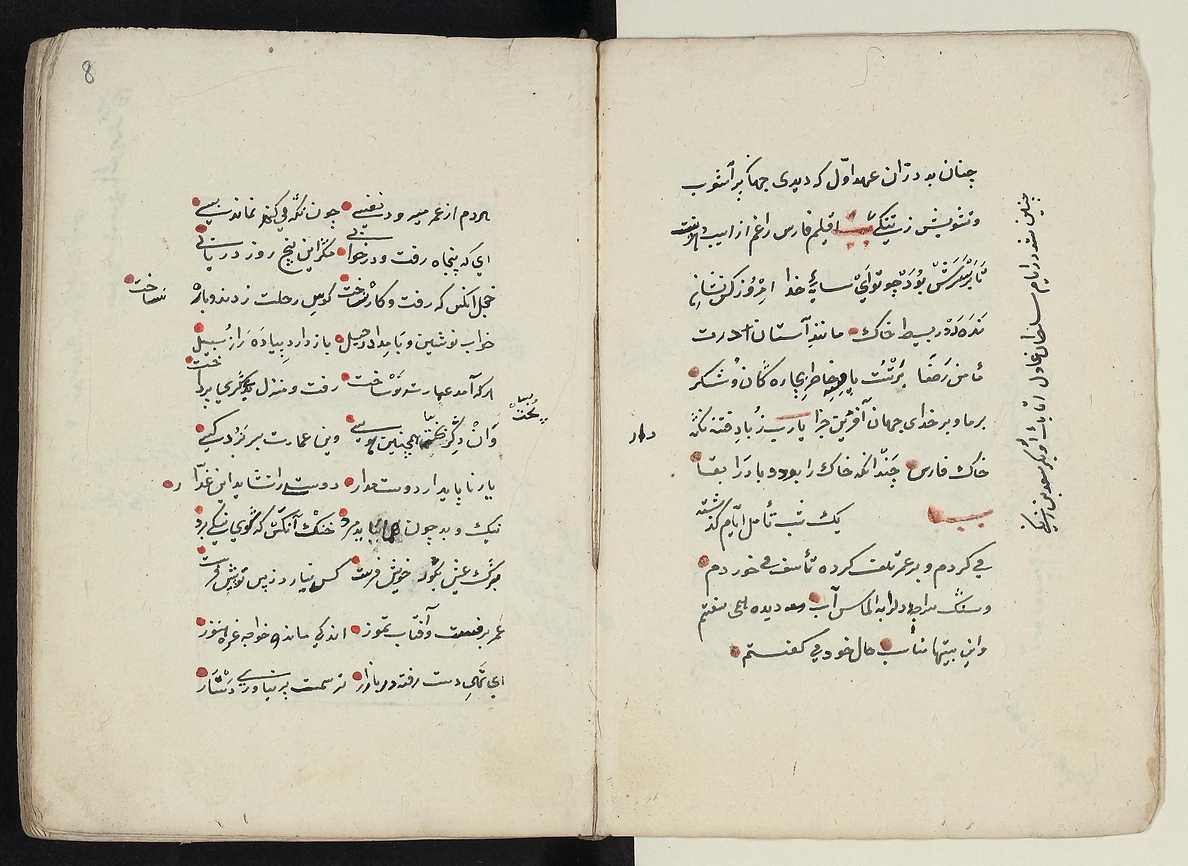 چنان بد در آن عهد اوّل که دیدی جهان پر آشوب
و تشویش ز تنگی بیت اقلیم فارس را غم از آسیب دهر نیست
تا بر سرش بود چو توئی سایۀ خدا امروز کس نشان
ندهد در بسیط خاک مانند آستان درت
مأمن رضا بر تست پاس خاطر بیچاره گان و شکر
بر ما و بر خدای جهان آفرین جزا یارب ز باد فتنه نگه
دار
خاک فارس چندانکه خاک را بود و باد را بقا
یک شب تأمل ایام گذشته
می کردم و بر عمر تلف کرده تأسف می خوردم
و سنگ سراچه دلرا بالماس آب دیده می سفتم
و این بیتها مناسب حال خود می گفتم
چنین شد در ایام سلطان عادل اتابک ابوبکر سعد بن زنگی
8
هر دم از عمر میرود نفسی چون نگه می کنم نماند بسی
ای که پنجاه رفت و در خوابی مگر این پنج روز دریابی
خجل انکس که رفت و کار نساخت کوس رحلت زدند و بار
نساخت
خواب نوشین و بامداد رحیل باز دارد پیاده را ز سبیل
هر که آمد عمارت نو ساخت رفت و منزل بدیگری پرداخت
وان دگر پخت همچنین هوسی وین عمارت بسر نبرد کسی
یار ناپایدار دوست مدار دوستی را نشاید این غدار
نیک و بد چون همی بباید مرد خنک آنکس که گوی نیکی برد
برگ عیش بگور خویش فرست کس نیارد ز پس تو پیش فرست
عمر برفست و آفتاب تموز اندکی مانده و خواجه غره هنوز
ای تهی دست رفته در بازار ترسمت بر نیاوری دستار